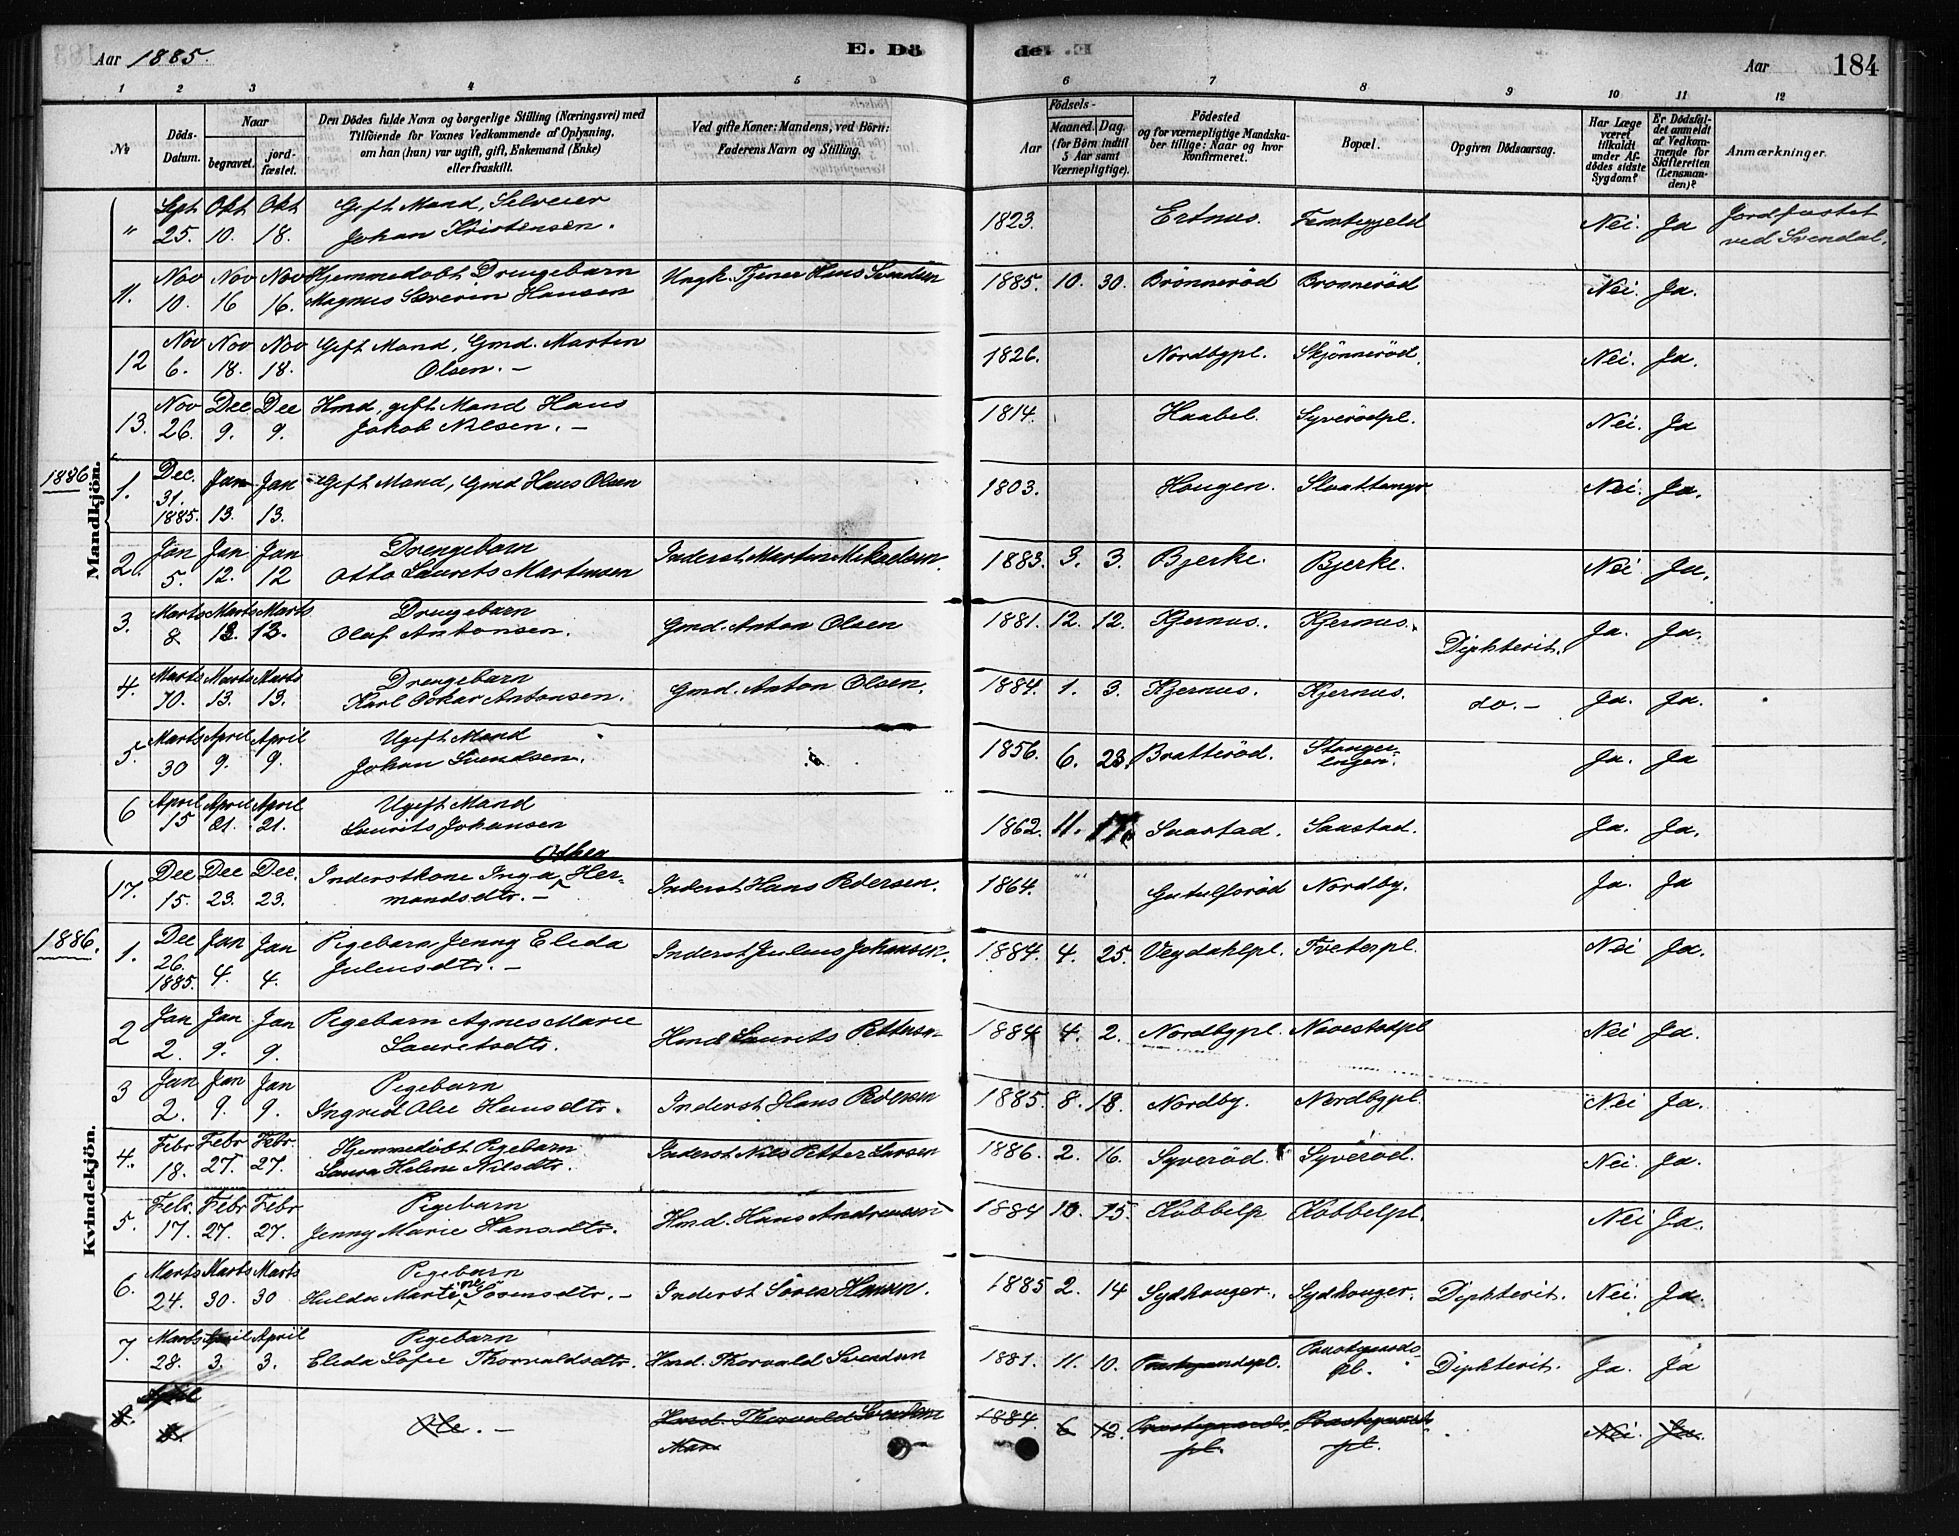 Aar 1885.
E. Dö
de. E
Aar
184
1 2 3 4 5 6 7 8 9 10 11 12
№ Döds-Datum. Naar begravet. jord-fæstet. Den Dödes fulde Navn og borgerlige Stilling (Næringsvei) med Tilföiende for Voxnes Vedkommende af Oplysning, om han (hun) var ugift, gift, Enkemand (Enke) eller fraskilt. Ved gifte Koner: Mandens, ved Börn: Faderens Navn og Stilling. Aar Födsels- Maaned. Dag. (for Börn indtil 5 Aar samt Værnepligtige). Födested og for værnepligtige Mandska-ber tillige: Naar og hvor konfirmeret. Bopæl. Opgiven Dödsaarsag. Har Læge været tilkaldt under Af-dödes sidste Sygdom? Er Dödsfal-det anmeldt af Vedkom-mende for Skifteretten (Lensman-den)? Anmærkninger.
Mandkjön.
" Sept 25. Okt 10. Okt 18. Gift Mand, Selveier Johan Kristensen. 1823. Ertnus. Femtegjeld Nei. Ja Jordfæstet ved Svendal.
11. Nov 10. Nov 16 Nov 16. Hjemmedöbt Drengebarn Magnus Severin Hansen Ungk. Tjener Hans Svendsen 1885. 10. 30. Brönneröd Bronneröd Nei. Ja.
12 Nov 6. Nov 18. Nov 18. Gift Mand, Gmd. Martin Olsen. — 1826. Nordbypl. Skjönneröd. Nei. Ja.
13. Nov 26. Dec 9. Dec 9. Hmd, gift Mand Hans Jakob Nilsen. — 1814. Haabel. Syverödpl. Nei. Ja
1886 1. Dec. 31. 1885. Jan 13. Jan 13. Gift Mand, Gmd Hans Olsen 1803. Hougen. Slaattemyr Nei. Ja.
2. Jan 5. Jan 12. Jan 12 Drengebarn Otto Laurits Martinsen Inderst Martin Mikaelsen. 1883. 3. 3. Bjerke. Bjerke. Nei Ja.
3. Marts 8 Marts 13. Marts 13. Drengebarn Olaf Antonsen. Gmd. Anton Olsen 1881. 12. 12. Kjernus. Kjernus. Diphterit. Ja. Ja.
4. Marts 10. Marts 13. Marts 13. Drengebarn Karl Oskar Antonsen. Gmd. Anton Olsen. 1884. 1. 3. Kjernus. Kjernus. do. — Ja. Ja.
5. Marts 30 April 9. April 9. Ugift Mand Johan Svendsen. 1856. 6. 23. Bratteröd. Stanger-engen. Ja. Ja
6 April 15 April 21. April 21. Ugift Mand Laurits Johansen 1862. 11. 17. Saastad. Saastad. Ja. Ja.
Kvindekjön.
17. Dec 15. Dec 23. Dec. 23. Inderstkone Inga Othea Her-mandsdtr. — Inderst Hans Pedersen. 1864. Gutulsröd Nordby. Ja. Ja
1886. 1. Dec 26. 1885. Jan 4. Jan 4. Pigebarn Jenny Elida Juliusdtr. — Inderst Julius Johansen. 1884. 4. 25. Vegdahlpl. Tveterpl. Nei Ja.
2 Jan 2. Jan 9. Jan 9. Pigebarn Agnes Marie Lauritsdtr. Hmd Laurits Pettersen 1884 4. 2. Nordbypl. Navestadpl Nei Ja.
3 Jan 2. Jan 9. Jan 9. Pigebarn Ingrid Olie Hansdtr. Inderst Hans Pedersen 1885. 8. 18. Nordby. Nordbypl. Nei Ja.
4. Febr 18. Febr 27. Febr. 27. Hjemmedöbt Pigebarn Laura Helene Nilsdtr. Inderst Nils Petter Larsen 1886. 2. 16. Syveröd. Syveröd. Nei. Ja.
5. Febr. 17. Febr 27. Febr 27. Pigebarn Jenny Marie Hansdtr. Hmd. Hans Andreasen 1884 10. 15. Kobbelp Kobbelpl. Nei Ja.
6. Marts 24. Marts 30. Marts 30 Pigebarn Hulda Martine Sörensdtr. — Inderst Sören Hansen. 1885 2. 14 Sydhouger. Sydhouger. Diphterit. Nei. Ja.
7. Marts 28. April 3. April 3. Pigebarn Elida Sofie Thorvaldsdtr. Hmd. Thorvald Svendsen 1881. 11. 10. Præstegaardspl. Præstegaards-pl. Diphterit. Ja. Ja
8. April 2. Ole. — Hmd. Thorvald Svendsen 1884 6 12. Præstegaards-pl. Præstegaards-pl. Nei. Ja.